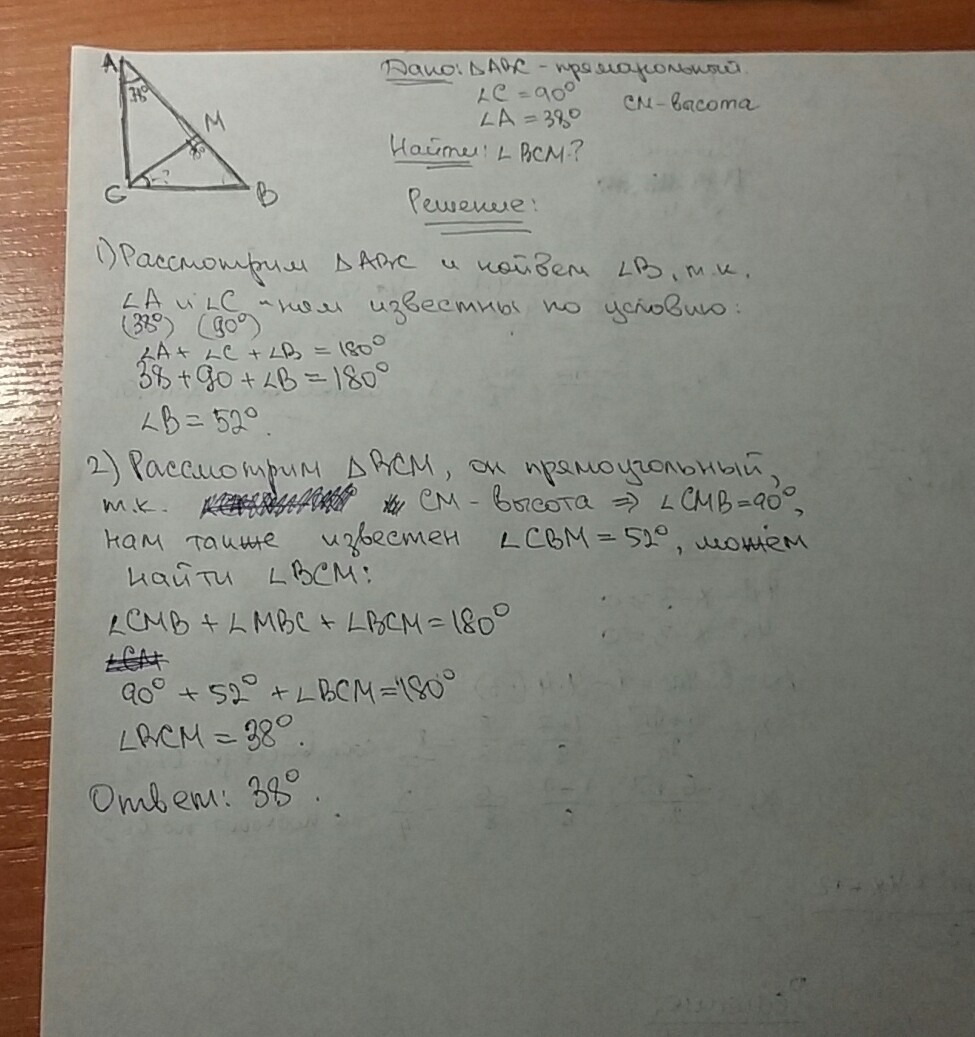 A
38°
M
90°
?
C
B
Дано: ΔABC - прямоугольный.
∠C = 90°
CM-высота
∠A = 38°
Найти: ∠BCM?
Решение:
1) Рассмотрим ΔABC и найдем ∠B, т.к.
∠A и ∠C - нам известны по условию:
(38°) (90°)
∠A + ∠C + ∠B = 180°
38 + 90 + ∠B = 180°
∠B = 52°.
2) Рассмотрим ΔBCM, он прямоугольный,
т.к. CM - высота ⇒ ∠CMB = 90°,
нам также известен ∠CBM = 52°, можем
найти ∠BCM:
∠CMB + ∠MBC + ∠BCM = 180°
∠CM
90° + 52° + ∠BCM = 180°
∠BCM = 38°.
Ответ: 38°.